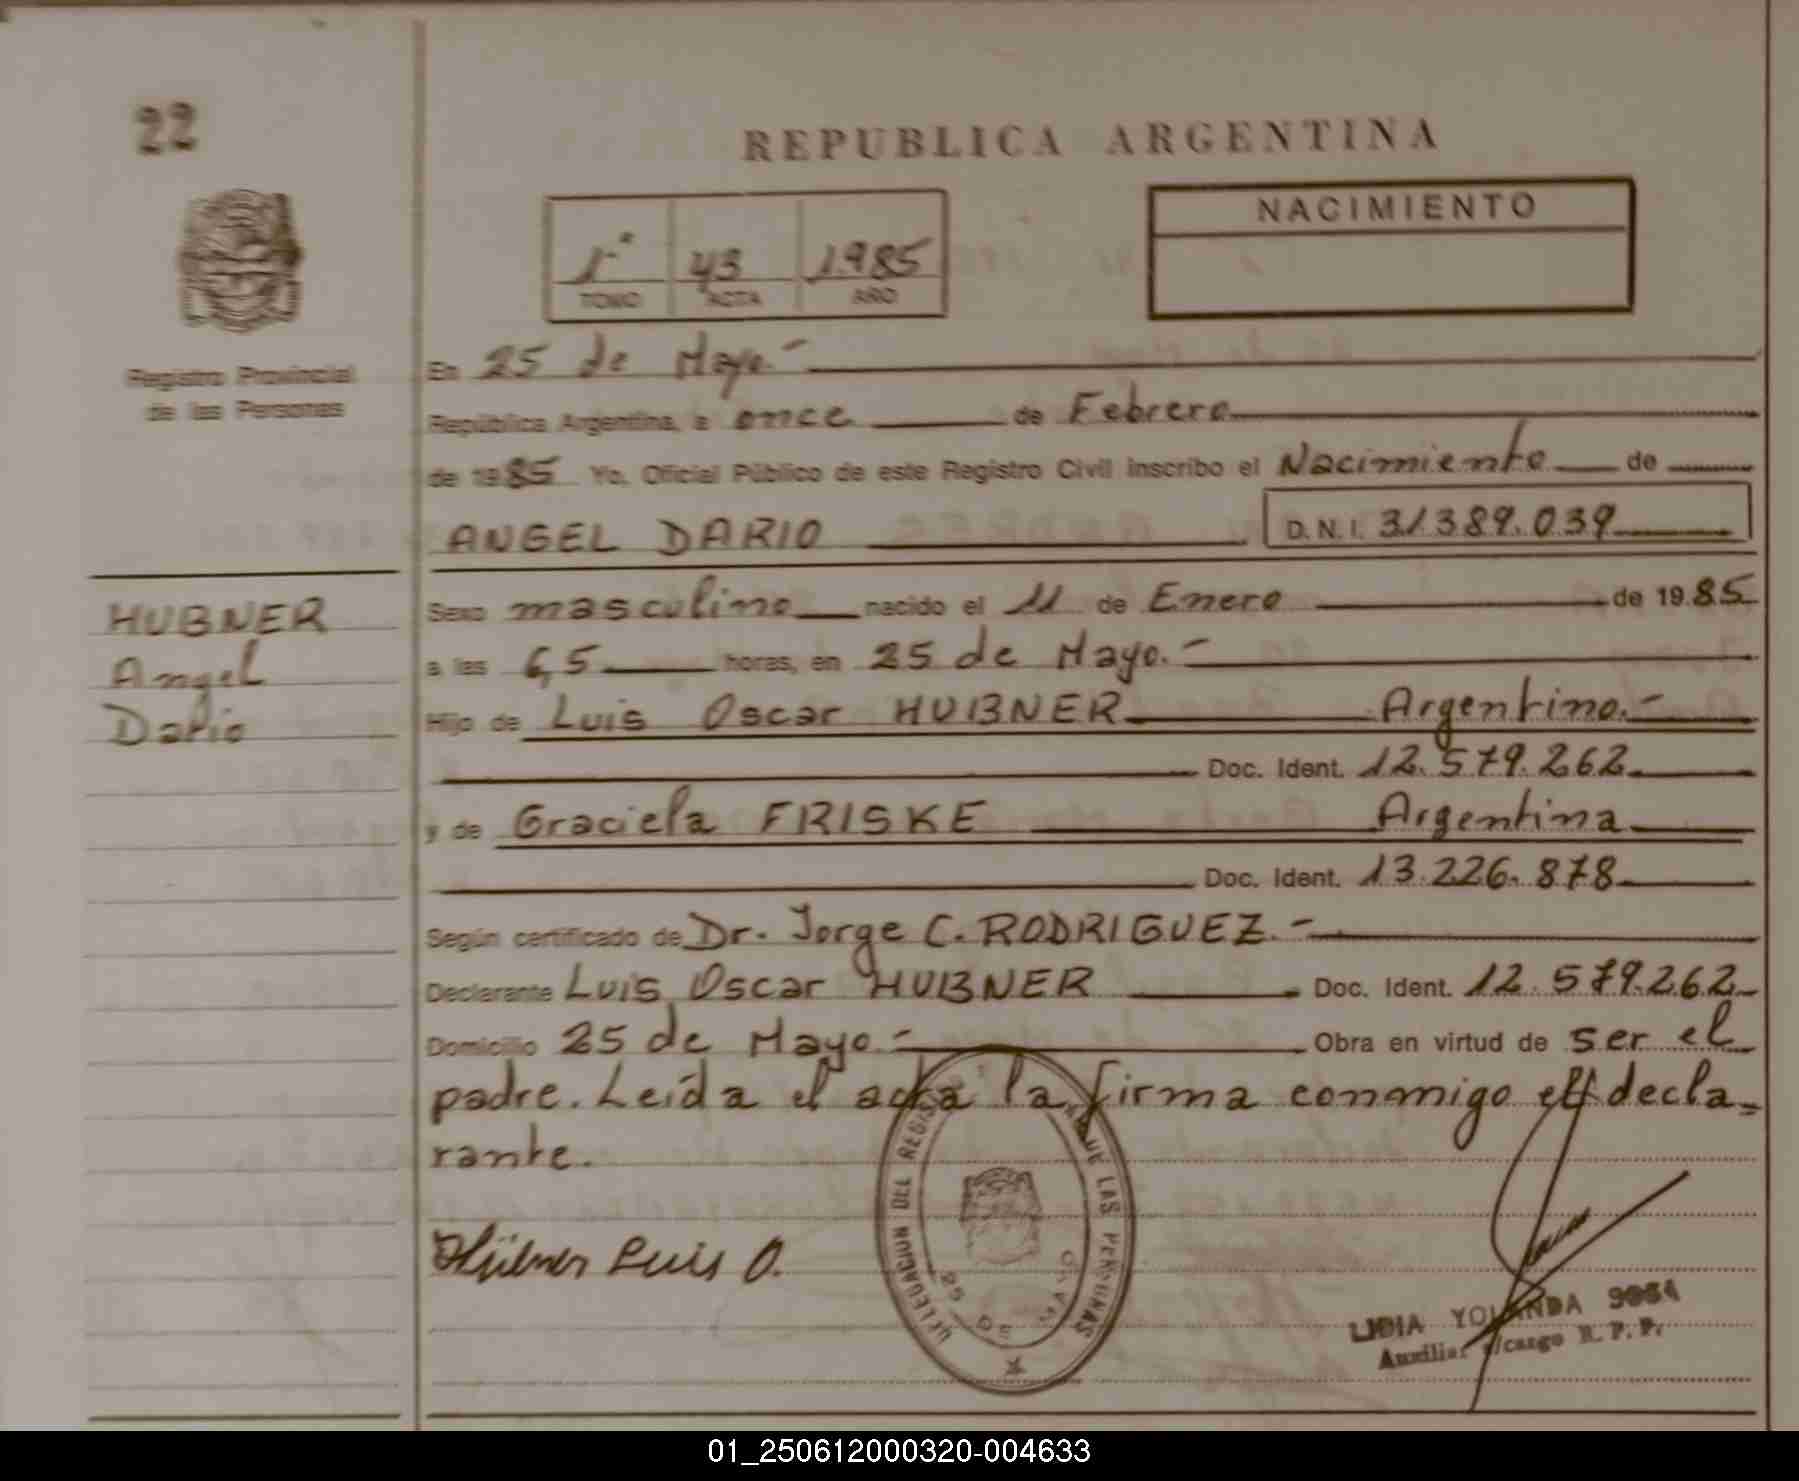 22
REPUBLICA ARGENTINA
Registro Provincial
de las Personas
1º 43 1985
TOMO ACTA AÑO
NACIMIENTO
En 25 de Mayo.-
República Argentina, a once de Febrero
de 1985 Yo, Oficial Público de este Registro Civil inscribo el Nacimiento de
ANGEL DARIO D.N.I. 31.389.039
HUBNER
Angel
Dario
Sexo masculino nacido el 11 de Enero de 1985
a las 6,5 horas, en 25 de Mayo.-
Hijo de Luis Oscar HUBNER Argentino.-
Doc. Ident. 12.579.262
y de Graciela FRISKE Argentina
Doc. Ident. 13.226.878
Según certificado de Dr. Jorge C. RODRIGUEZ.-
Declarante Luis Oscar HUBNER Doc. Ident. 12.579.262
Domicilio 25 de Mayo.- Obra en virtud de ser el
padre. Leída el acta la firma conmigo el decla-
rante.
DELEGACION DEL REGISTRO DE LAS PERSONAS
25 DE
Hübner Luis O.
LIDIA YOLANDA
Auxiliar a/cargo R. P. P.
01_250612000320-004633